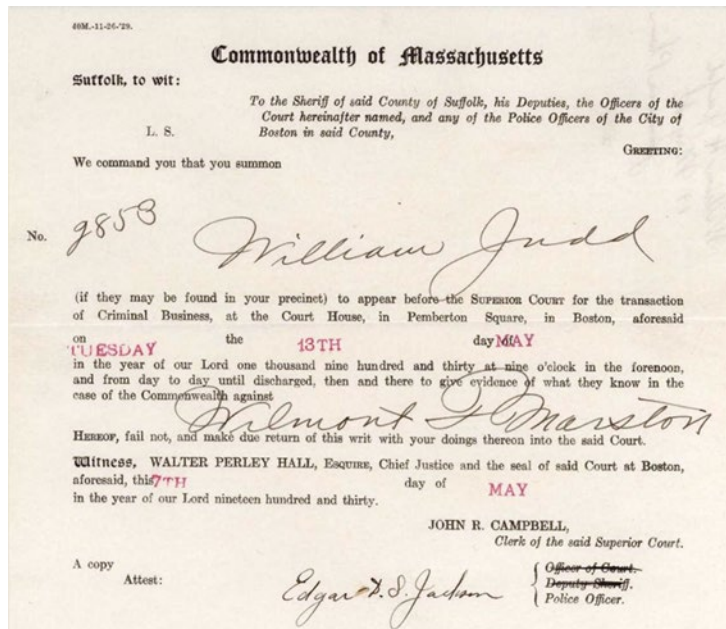 40M.-11-26-'29.
Commonwealth of Massachusetts
Suffolk, to wit:
To the Sheriff of said County of Suffolk, his Deputies, the Officers of the
Court hereinafter named, and any of the Police Officers of the City of
L. S. Boston in said County,
GREETING:
We command you that you summon
No. 9853 William Judd
(if they may be found in your precinct) to appear before the SUPERIOR COURT for the transaction
of Criminal Business, at the Court House, in Pemberton Square, in Boston, aforesaid
on TUESDAY the 13TH day of MAY
in the year of our Lord one thousand nine hundred and thirty at nine o'clock in the forenoon,
and from day to day until discharged, then and there to give evidence of what they know in the
case of the Commonwealth against
Wilmont F Marston
HEREOF, fail not, and make due return of this writ with your doings thereon into the said Court.
Witness, WALTER PERLEY HALL, ESQUIRE, Chief Justice and the seal of said Court at Boston,
aforesaid, this 7TH day of MAY
in the year of our Lord nineteen hundred and thirty.
JOHN R. CAMPBELL,
Clerk of the said Superior Court.
A copy
Attest:
Edgar D. S. Jackson
Officer of Court.
Deputy Sheriff.
Police Officer.